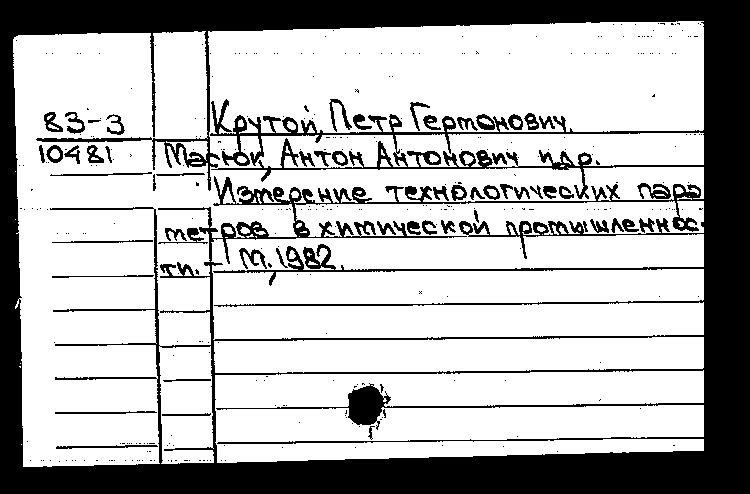 83-3 Крутой, Петр Гертонович.
10481 Масюк, Антон Антонович и др.
Измерение технологических пара
метров в химической промышленнос-
ти. - М., 1982.